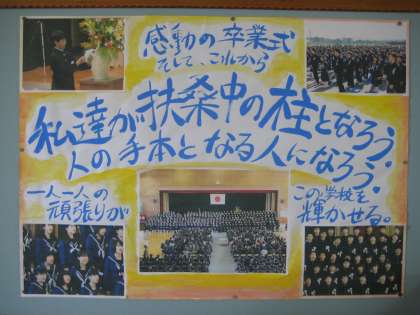 感動の卒業式
そして、これから
私達が扶桑中の柱となろう。
人の手本となる人になろう。
一人一人の
頑張りが
この学校を
輝かせる。